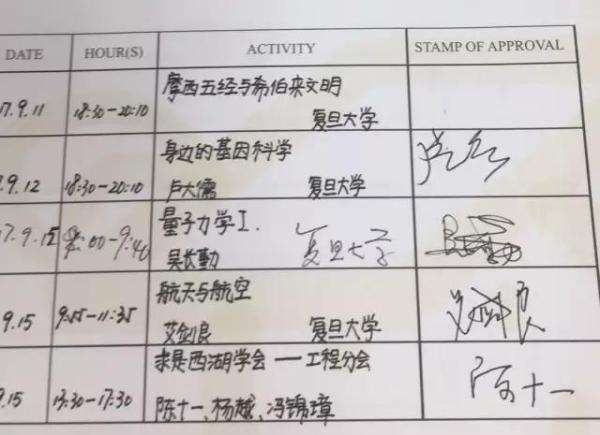 DATE HOUR(S) ACTIVITY STAMP OF APPROVAL
17.9.11 18:30-20:10 摩西五经与希伯来文明
复旦大学
9.12 18:30-20:10 身边的基因科学
卢大儒 复旦大学
17.9.15 8:00-9:40 量子力学I.
吴长勤 复旦大学
9.15 9:55-11:35 航天与航空
艾剑良 复旦大学
9.15 13:30-17:30 求是西湖学会——工程分会
陈十一、杨越、冯锦璋 陈十一